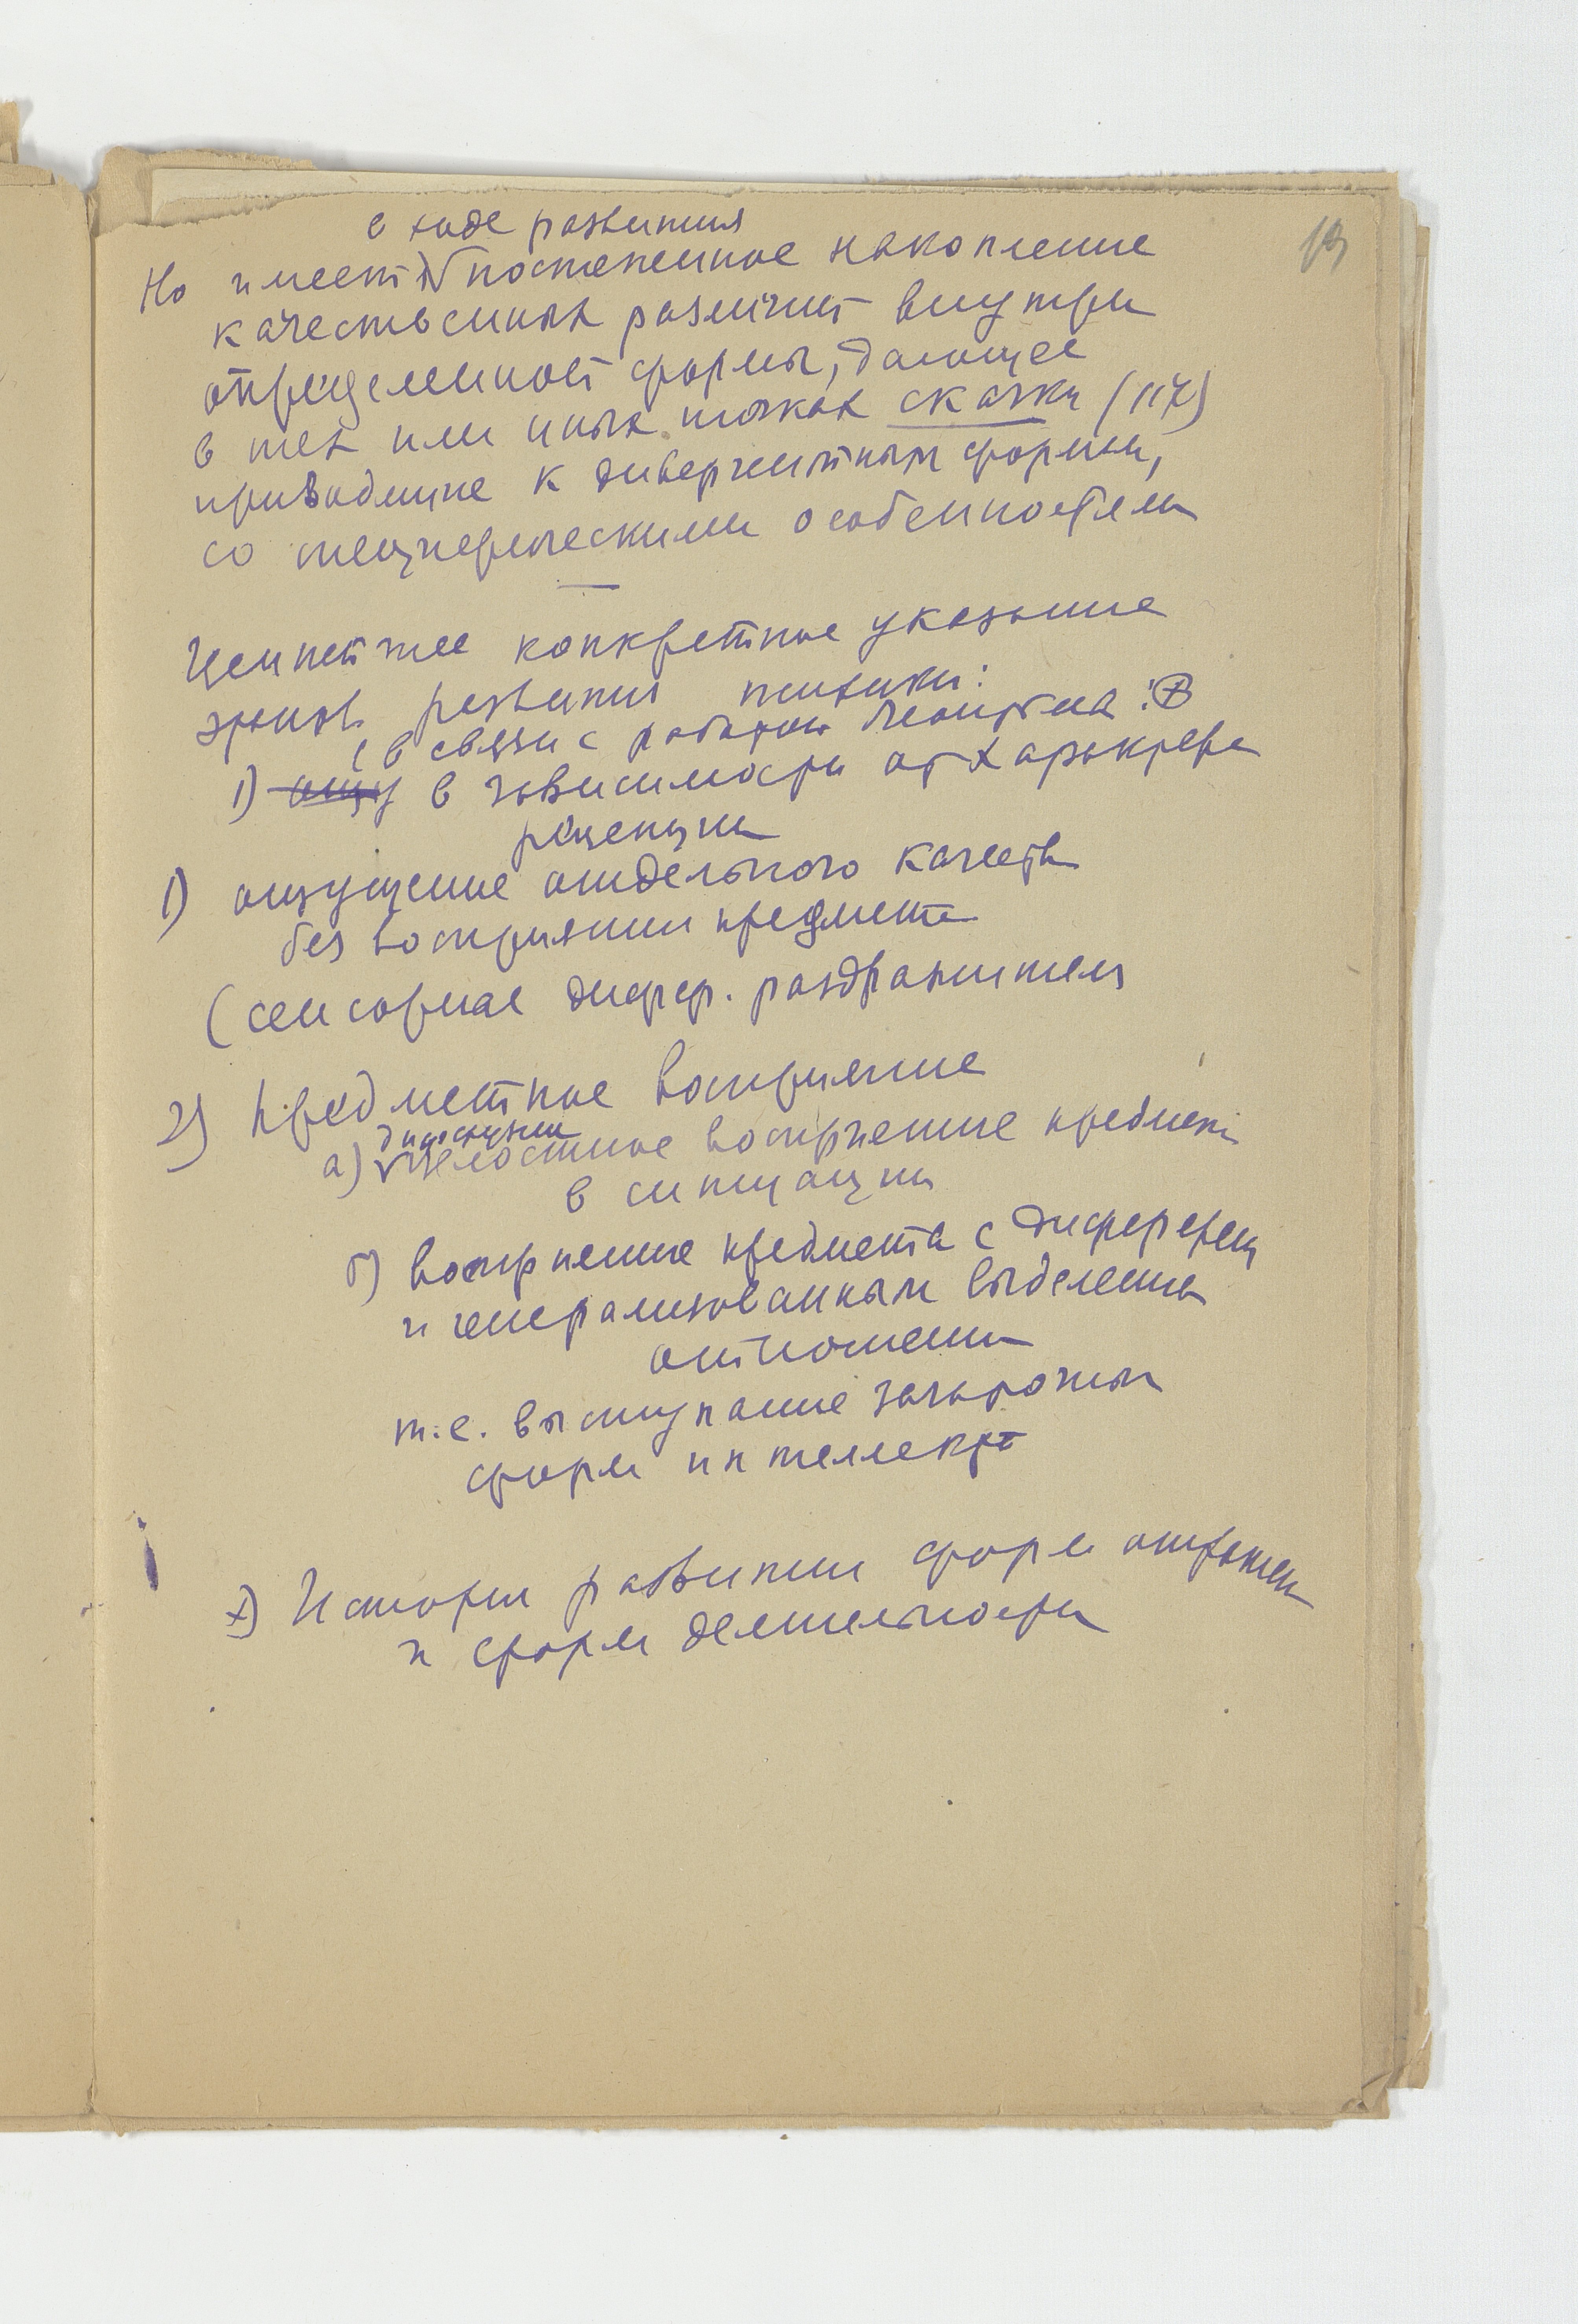 19
в ходе развития
Но имеет постепенное накопление
качественных различий внутри
определенной формы, дающее
в тех или иных точках скачки (117)
приводящие к дивергентным формам,
со специфическими особенностями
Ценнейшее конкретное указание
эпизов развития психики:
(в связи с работой Леонтьева:
1) ощу в зависимости от характера
рецепции
1) ощущение отдельного качества
без восприятия предмета
(сенсорная дифер. раздражителя
2) Предметное восприятие
а) диффузное целостное восприятие предмета
в ситуации
б) восприятие предмета с диференц
и генерализованным выделением
отношений
т.е. выступание зачаточных
форм интеллекта
х) История развития форм отражен
и форм деятельности